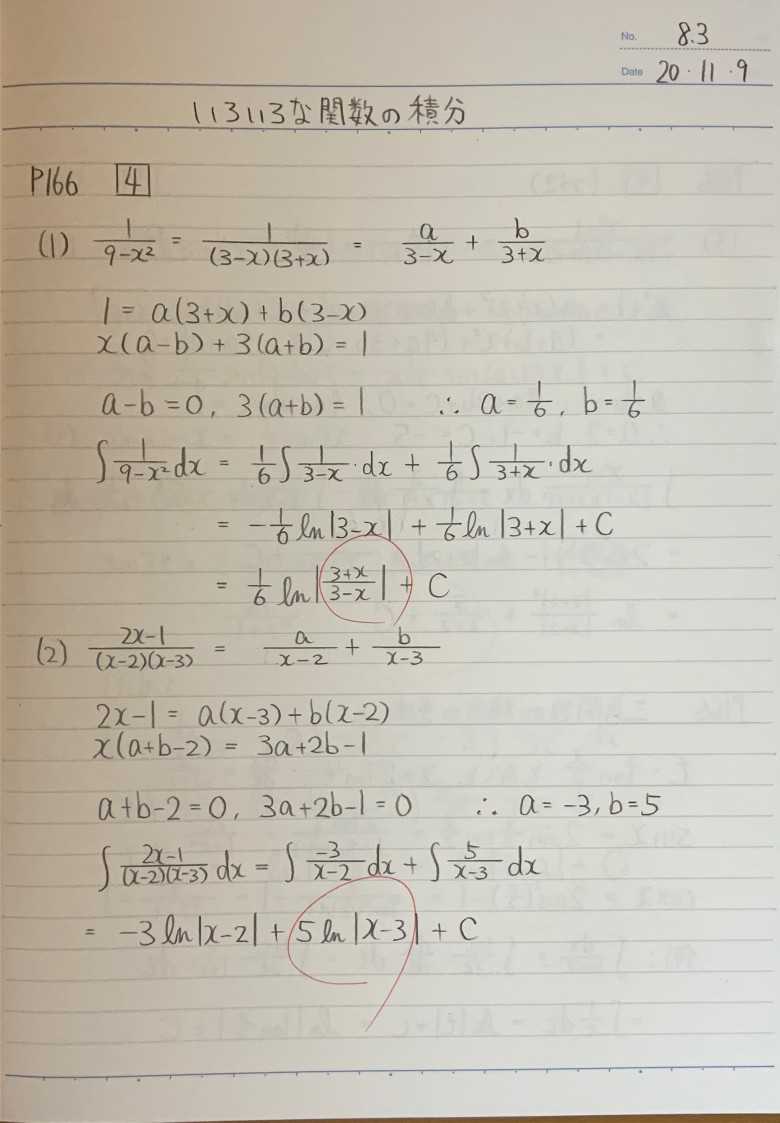 No. 8.3
Date 20・11・9
いろいろな関数の積分
P166 [4]
(1) 1/(9-x²) = 1/((3-x)(3+x)) = a/(3-x) + b/(3+x)
1 = a(3+x) + b(3-x)
x(a-b) + 3(a+b) = 1
a-b = 0, 3(a+b) = 1 ∴ a = 1/6, b = 1/6
∫ 1/(9-x²) dx = 1/6 ∫ 1/(3-x)・dx + 1/6 ∫ 1/(3+x)・dx
= -1/6 ln|3-x| + 1/6 ln|3+x| + C
= 1/6 ln|(3+x)/(3-x)| + C
(2) (2x-1)/((x-2)(x-3)) = a/(x-2) + b/(x-3)
2x-1 = a(x-3) + b(x-2)
x(a+b-2) = 3a+2b-1
a+b-2 = 0, 3a+2b-1 = 0 ∴ a = -3, b = 5
∫ (2x-1)/((x-2)(x-3)) dx = ∫ -3/(x-2) dx + ∫ 5/(x-3) dx
= -3 ln|x-2| + 5 ln|x-3| + C